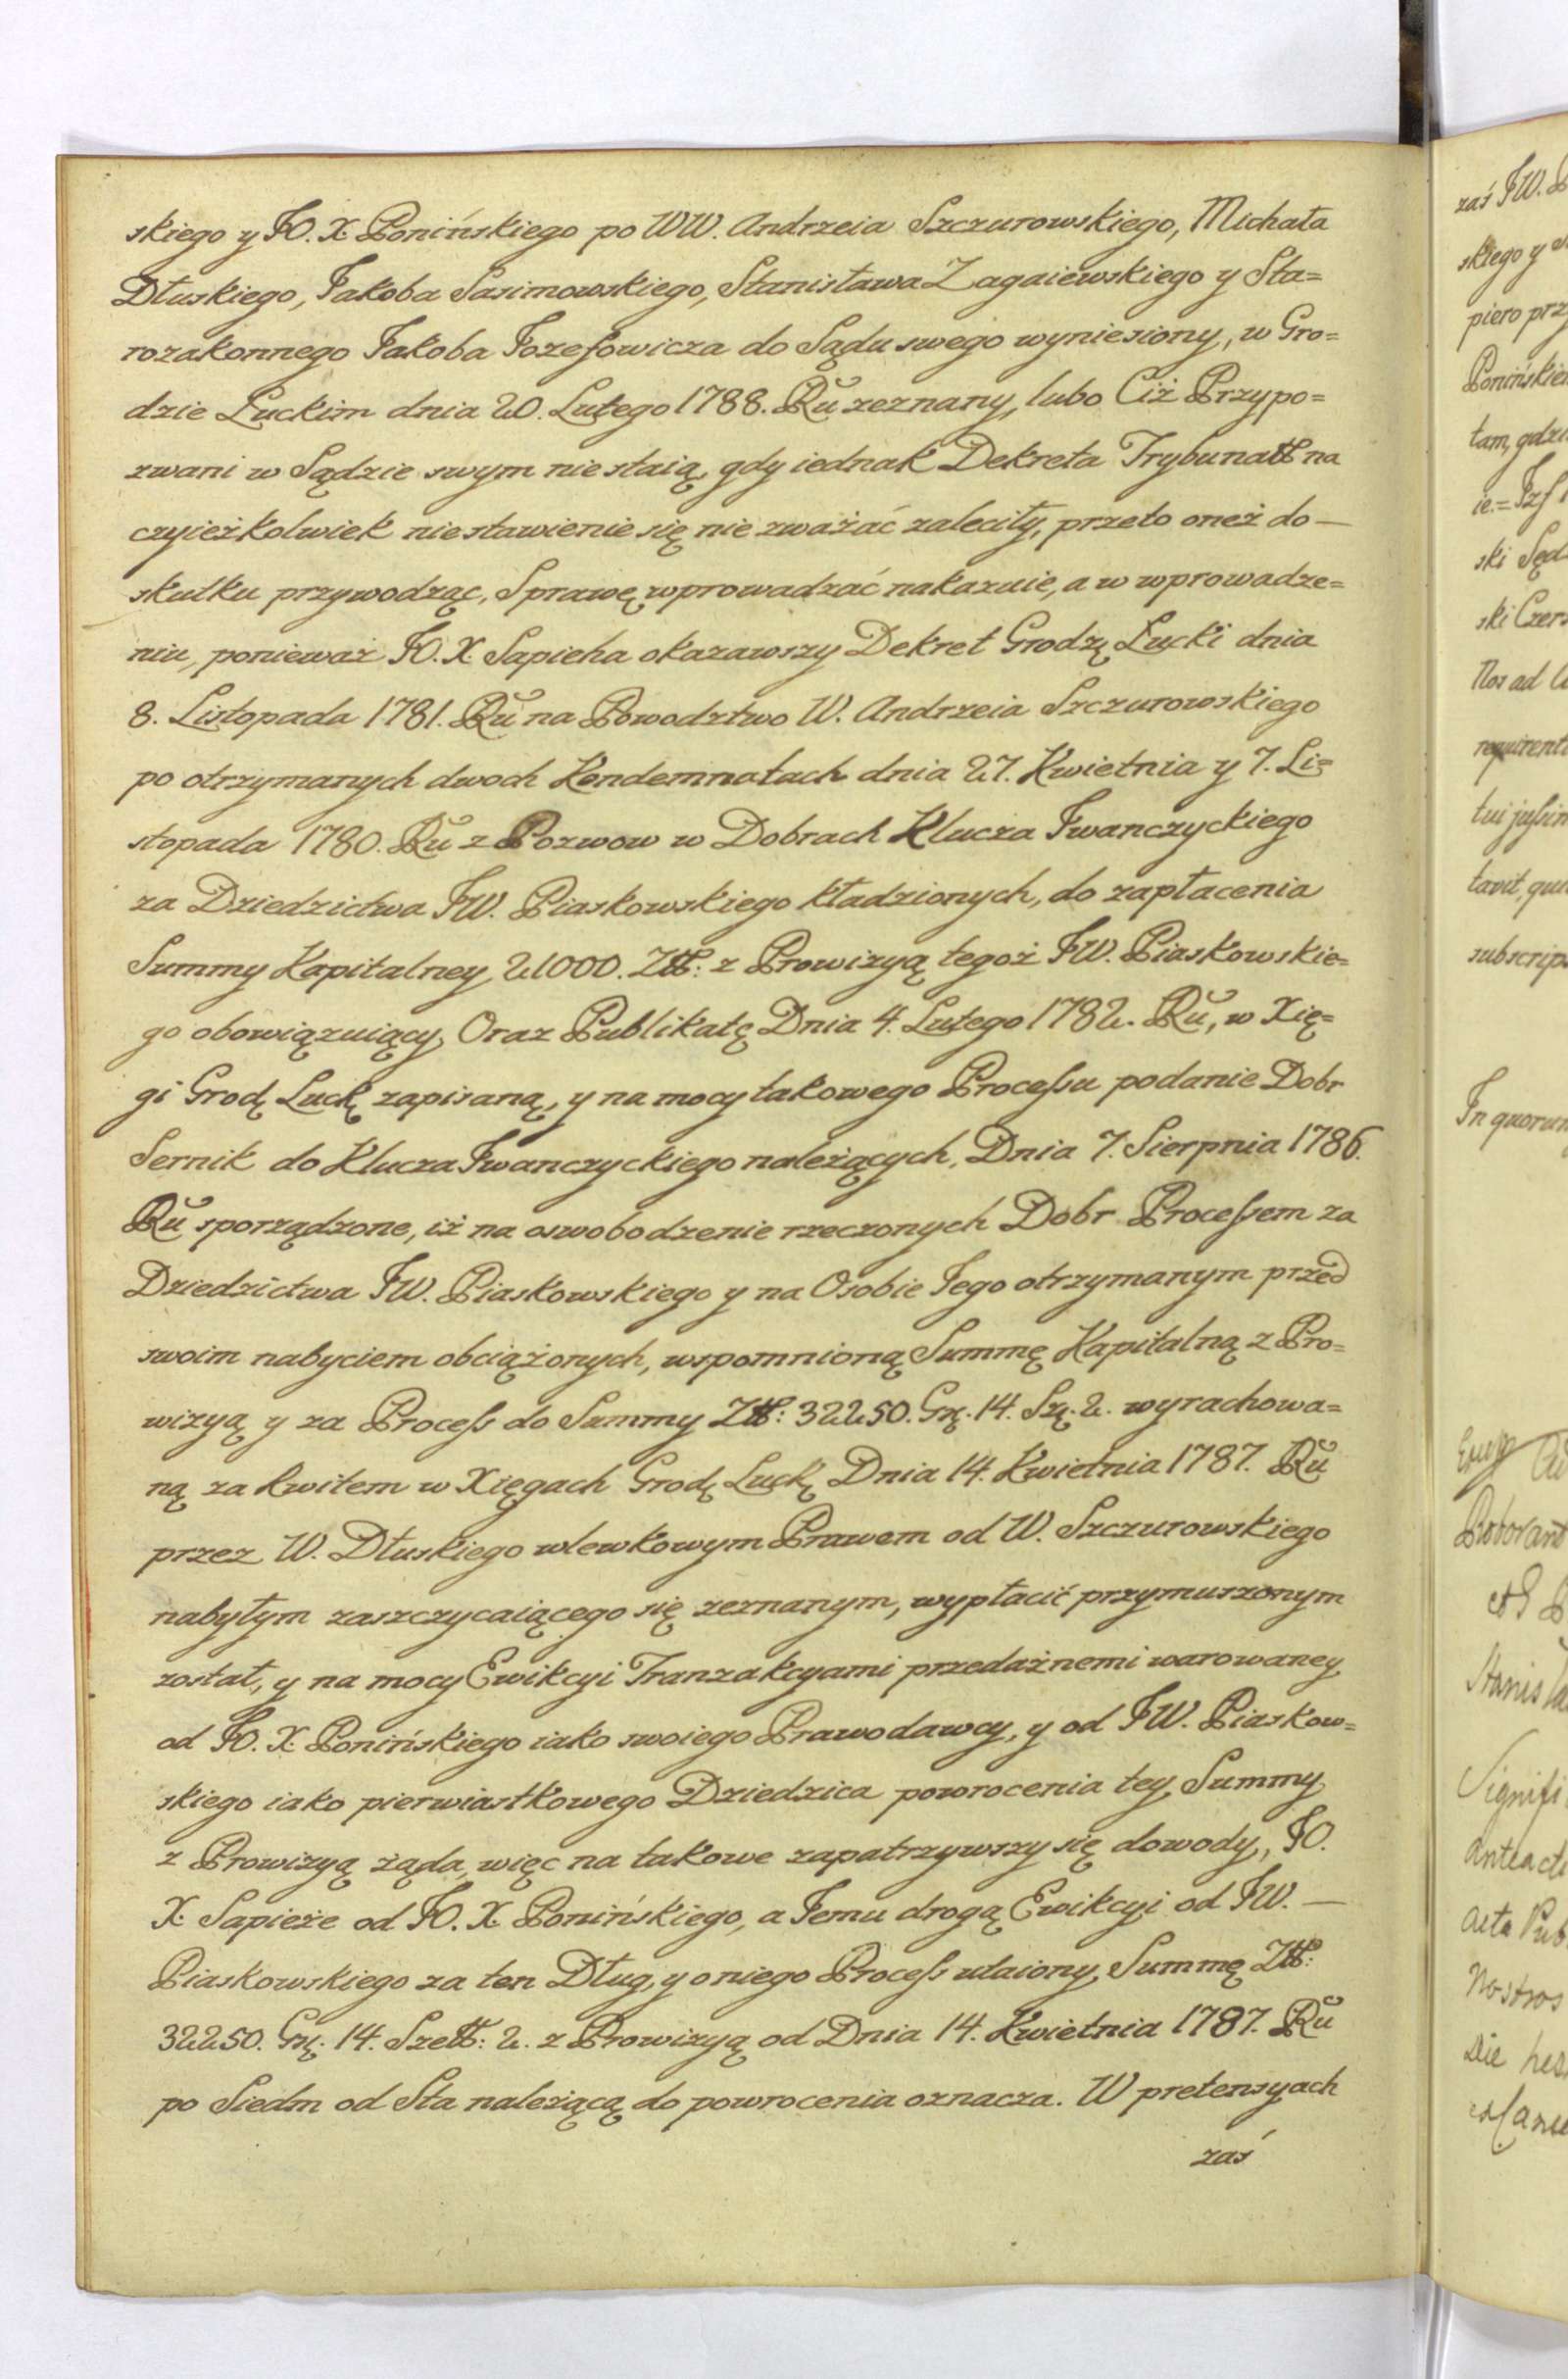 skiego y JO. X Ponińskiego po WW. Andrzeia Szczurowskiego, Michała
Dłuskiego, Jakoba Sasimowskiego, Stanisława Zagaiewskiego y Sta=
rozakonnego Jakoba Jozefowicza do Sądu swego wyniesiony, w Gro=
dzie Łuckim dnia 20. Lutego 1788. Ru zeznany, lubo Ciż Przypo=
zwani w Sądzie swym nie staią, gdy iednak Dekreta Trybunall na
czyieżkolwiek niestawienie się nie zważać zaleciły, przeto oneż do —
skutku przywodząc, Sprawę wprowadzać nakazuie, a w wprowadze=
niu, ponieważ JO. X Sapieha okazawszy Dekret Grodz Łucki dnia
8. Listopada 1781. Ru na Powodztwo W. Andrzeia Szczurowskiego
po otrzymanych dwoch Kondemnatach dnia 27. Kwietnia y 7. Li=
stopada 1780. Ru z Pozwow w Dobrach Klucza Iwanczyckiego
za Dziedzictwa JW. Piaskowskiego kładzionych, do zapłacenia
Summy Kapitalney 21000. Zll: z Prowizyą tegoż JW. Piaskowskie=
go obowiązuiący, Oraz Publikatę Dnia 4. Lutego 1782. Ru, w Xię=
gi Grod Luck zapisaną, y na mocy takowego Processu podanie Dobr
Sernik do Klucza Iwanczyckiego należących, Dnia 7. Sierpnia 1786.
Ru sporządzone, iż na oswobodzenie rzeczonych Dobr Processem za
Dziedzictwa JW. Piaskowskiego y na Osobie Jego otrzymanym przed
swoim nabyciem obciążonych, wspomnioną Summę Kapitalną z Pro=
wizyą y za Process do Summy Zll: 32250. Gr. 14. Sz. 2. wyrachowa=
ną za kwitem w Xięgach Grod Luck Dnia 14. Kwietnia 1787. Ru
przez W. Dłuskiego wlewkowym Prawem od W. Szczurowskiego
nabytym zaszczycaiącego się zeznanym, wypłacić przymuszonym
został, y na mocy Ewikcyi Tranzakcyami przedażnemi warowaney
od JO. X Ponińskiego iako swoiego Prawodawcy, y od JW. Piaskow=
skiego iako pierwiastkowego Dziedzica powrocenia tey Summy
z Prowizyą żąda, więc na takowe zapatrzywszy się dowody, JO.
X Sapieże od JO. X Ponińskiego, a Jemu drogą Ewikcyi od JW. —
Piaskowskiego za ten Dług, y o niego Process utaiony, Summę Zll:
32250. Gr. 14. Szell: 2. z Prowizyą od Dnia 14. Kwietnia 1787. Ru
po Siedm od Sta należącą do powrocenia oznacza. W pretensyach
zaś
zaś JW.
skiego y
piero prz
Poniński
tam, gdzi
ski
ski Czer
Nos ad
requirent
tui
tavit, qu
subscrip
In quorum
Stanisła
Signifi
Acta Pub
Nostros
Die